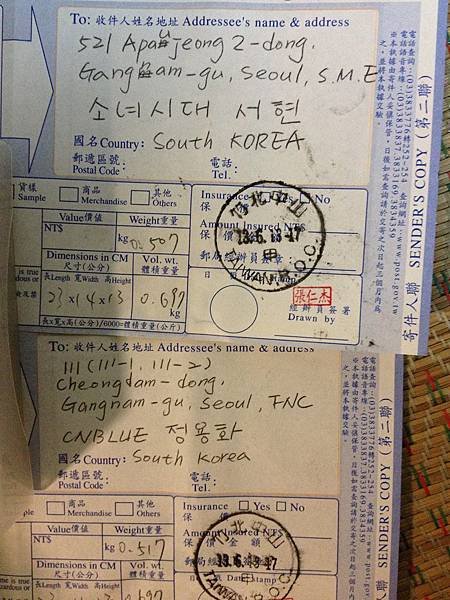 To: 收件人姓名地址 Addressee's name & address
521 Apgujeong 2-dong.
Gangnam-gu, Seoul, S.M.E
소녀시대 서현
國名Country: South KOREA
郵遞區號. 電話.
Postal Code: Tel.
貨樣 商品 其他
Sample Merchandise Others
Insurance Yes No
Value價值 Weight重量
NT$ kg 0.507
Amount Insured NT$
保價金額
Dimensions in CM Vol. wt.
尺寸(公分) 體積重量
郵局經辦員簽章
長Length 寬Width 高Height
23x14x13 0.697
長x寬x高(公分)/6000=體積重量(公斤)
張仁杰
經辦員簽署
Drawn by
台北中山
13.6.13-17
甲
TAIWAN R.O.C.
寄件人聯 SENDER'S COPY (第二聯)
To: 收件人姓名地址 Addressee's name & address
111 (111-1, 111-2)
Cheongdam-dong.
Gangnam-gu, Seoul, FNC
CNBLUE 정용화
國名Country: South Korea
郵遞區號. 電話:
Postal Code Tel.
商品 其他
Merchandise Others
Insurance Yes No
Value價值 Weight重量
NT$ kg 0.517
Amount Insured NT$
保價金額
Dimensions in CM Vol. wt.
尺寸(公分) 體積重量
長Length 寬Width 高Height
台北中山
13.6.13-17
寄件人聯 SENDER'S COPY (第二聯)